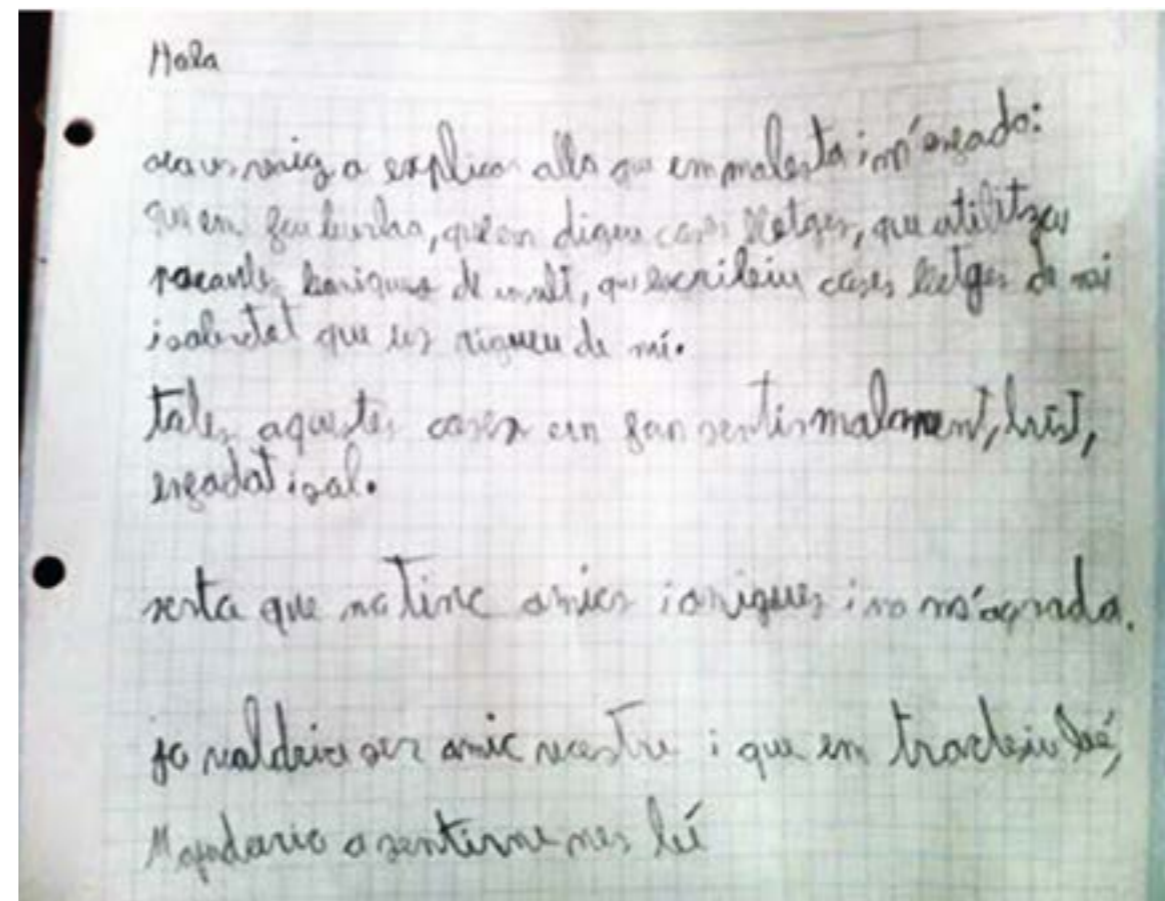 Hola
ara us vaig a explicar allo que em molesta i m'enfado:
que em feu burla, que em digueu coses lletges, que utilitzeu
paraules boniques de insult, que escribeiu coses lletges de mi
i sobretot que us rigueu de mi.
totes aquestes coses em fan sentir malament, trist,
enfadat i sol.
senta que no tinc amics i amigues i no m'agrada.
jo valdria ser amic vostre i que em tracteiu bé,
M'ajudaria a sentirme mes bé